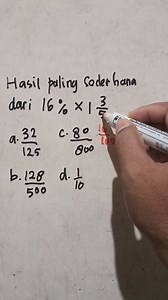 Hasil paling Sederhana
dari 16% × 1 3/5
a. 32/125
c. 80/800
b. 128/500
d. 1/10